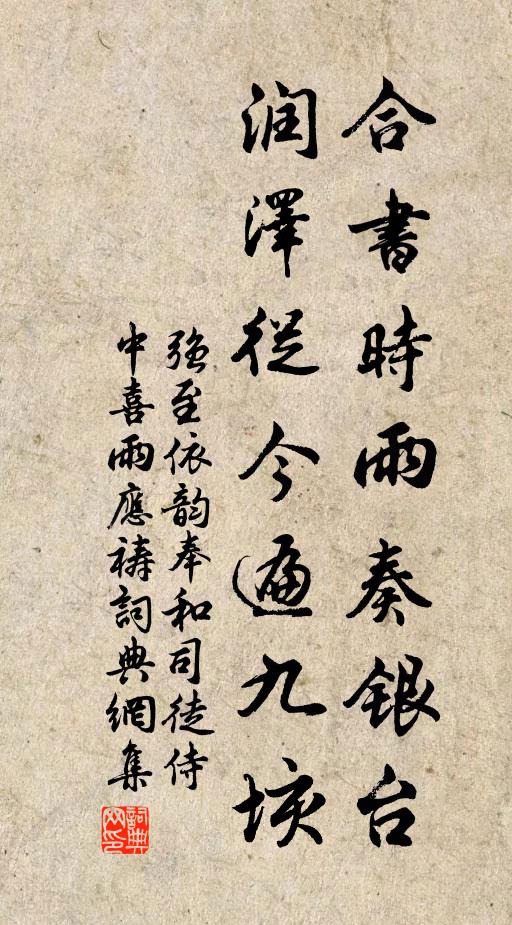 合書時雨奏銀台
润澤從今遍九垓
強至依韵奉和司徒侍
中喜雨應禱詞典網集
詞典网印